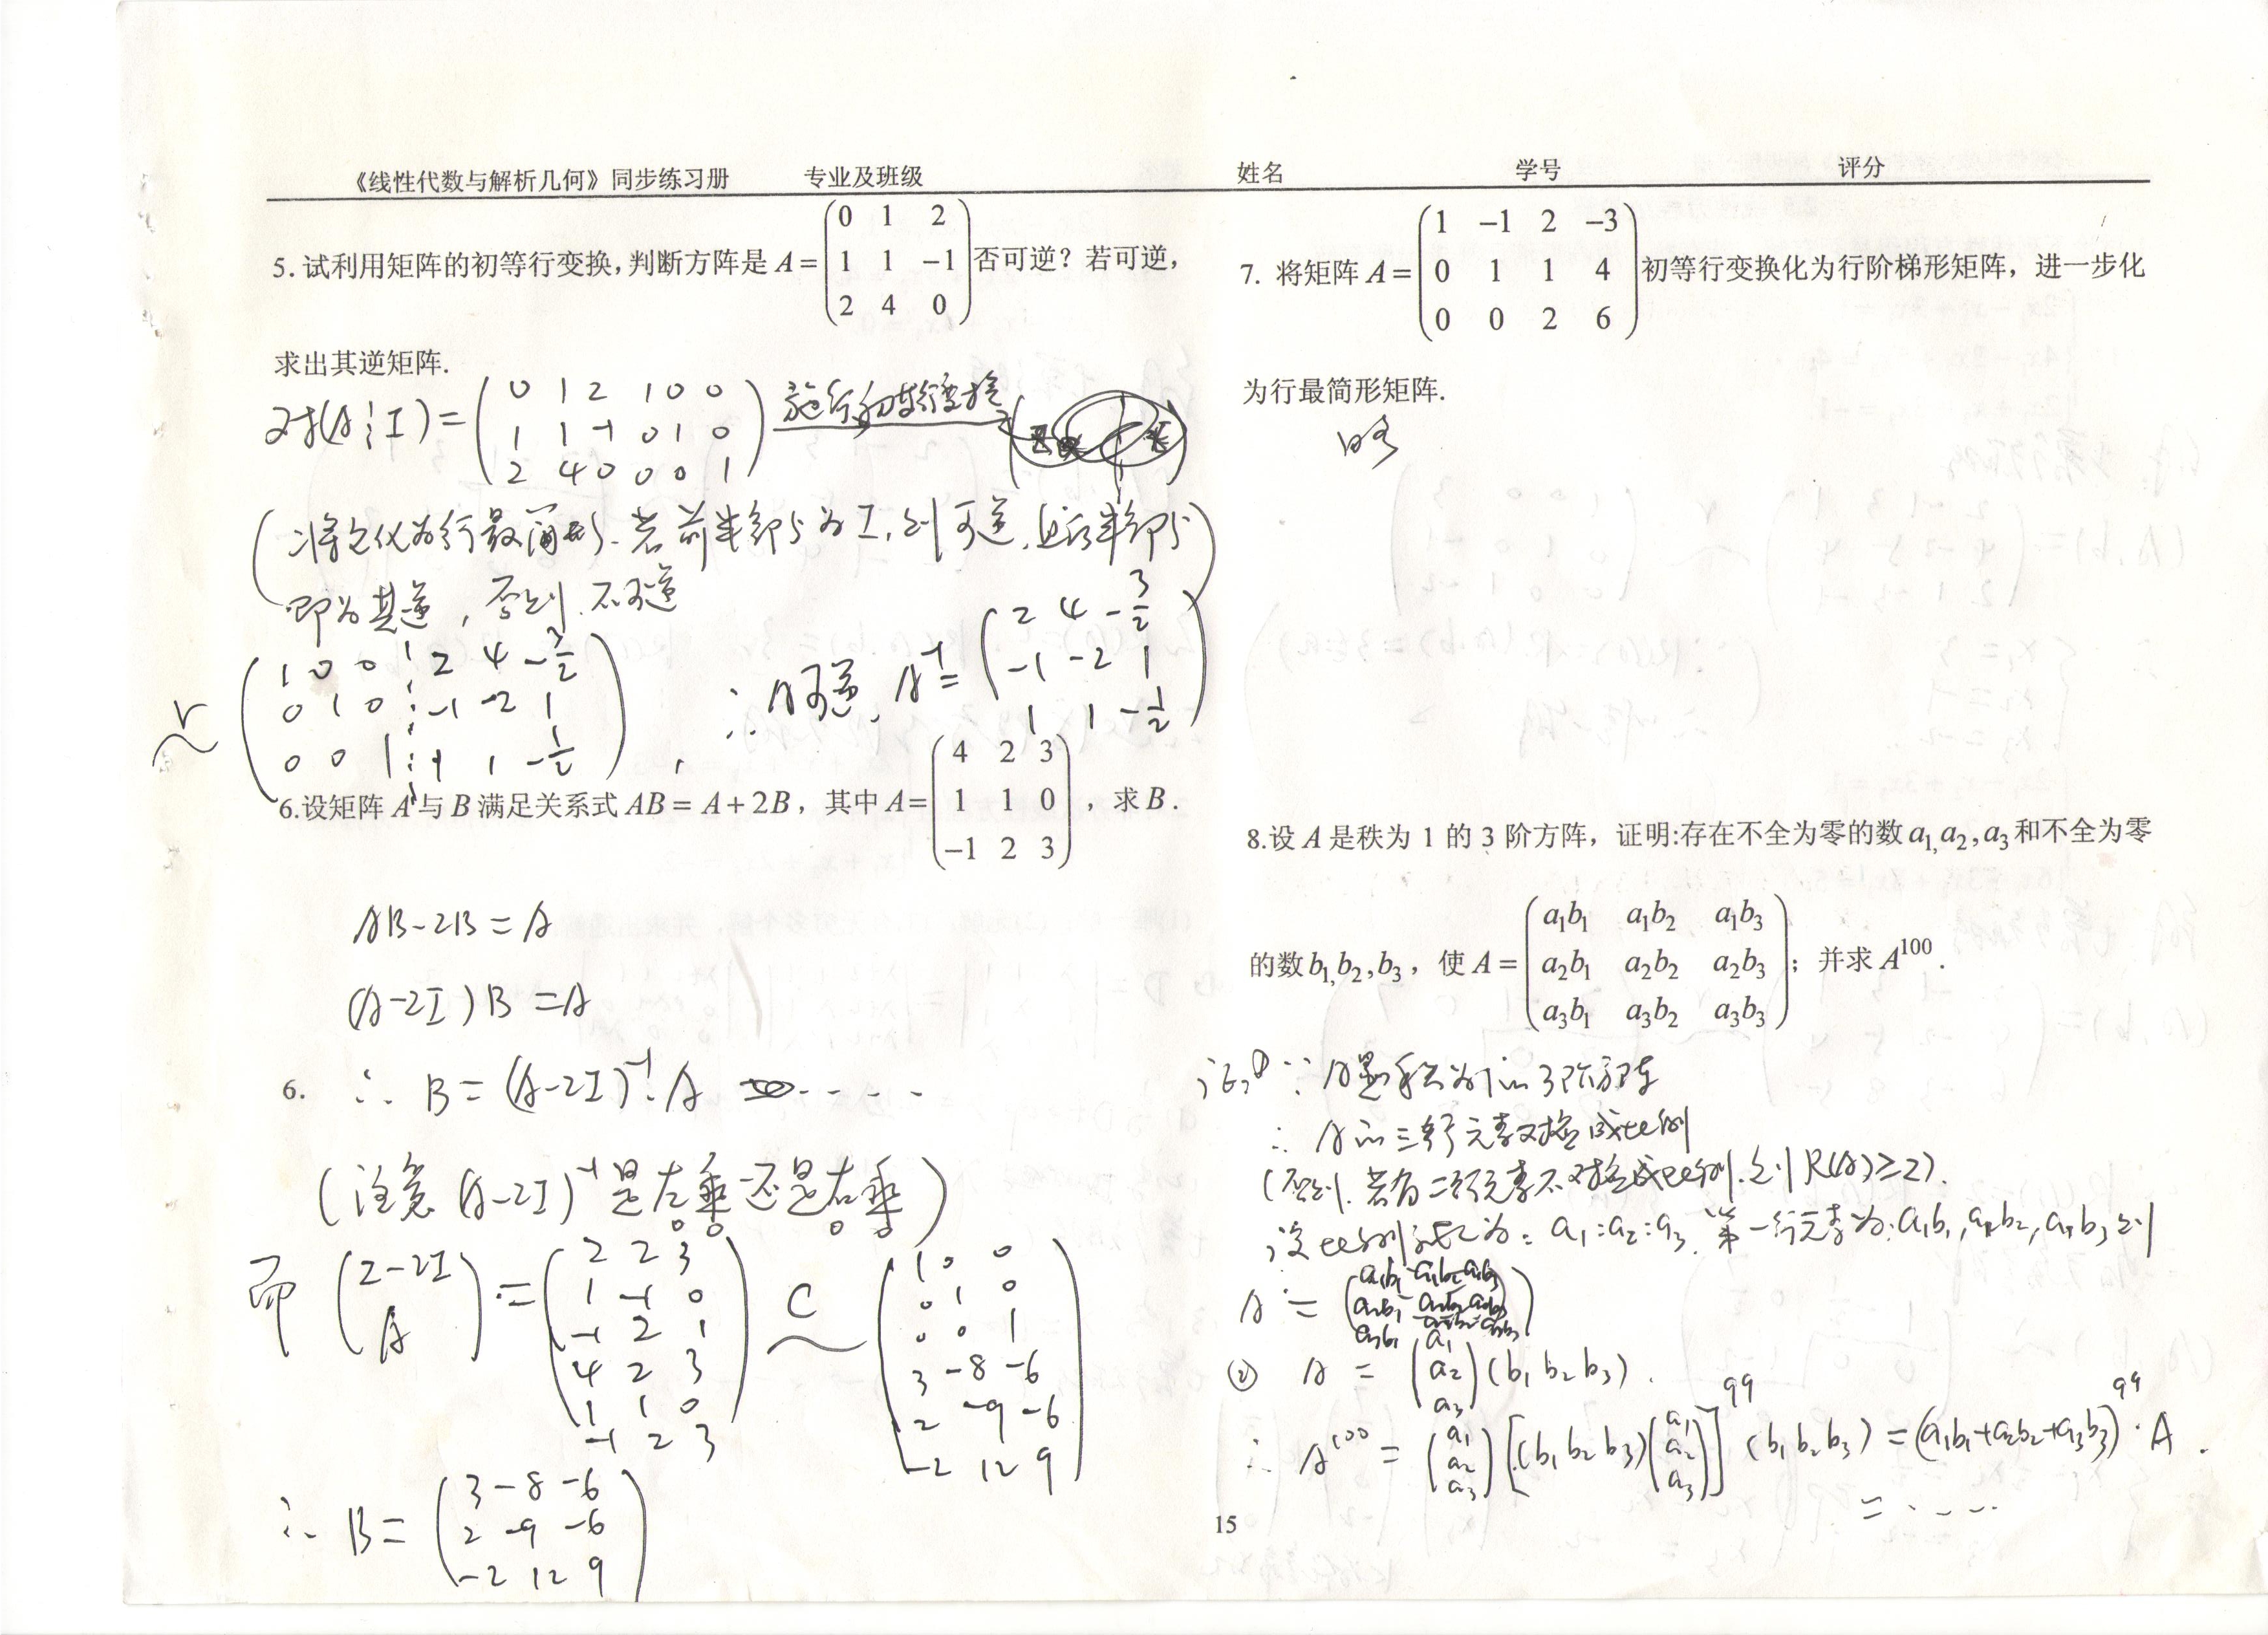 《线性代数与解析几何》同步练习册 专业及班级 姓名 学号 评分
5. 试利用矩阵的初等行变换,判断方阵是 A = (0 1 2; 1 1 −1; 2 4 0) 否可逆？若可逆，
求出其逆矩阵.
对(A ⋮ I) = (0 1 2 1 0 0; 1 1 -1 0 1 0; 2 4 0 0 0 1) 施行初等行变换
(将它化为行最简形. 若前半部分为 I, 则可逆, 且后半部分
即为其逆, 否则, 不可逆)
r ~ (1 0 0 ⋮ 2 4 -3/2; 0 1 0 ⋮ -1 -2 1; 0 0 1 ⋮ 1 1 -1/2),
∴ A可逆, A⁻¹ = (2 4 -3/2; -1 -2 1; 1 1 -1/2)
6.设矩阵 A 与 B 满足关系式 AB = A + 2B，其中 A = (4 2 3; 1 1 0; −1 2 3)，求 B .
AB-2B = A
(A-2I)B = A
6. ∴ B = (A-2I)⁻¹·A ----
(注意 (A-2I)⁻¹ 是左乘还是右乘)
而 (2-2I; A) = (2 2 3; 1 -1 0; -1 2 1; 4 2 3; 1 1 0; -1 2 3) C ~ (1 0 0; 0 1 0; 0 0 1; 3 -8 -6; 2 -9 -6; -2 12 9)
∴ B = (3 -8 -6; 2 -9 -6; -2 12 9)
7. 将矩阵 A = (1 −1 2 −3; 0 1 1 4; 0 0 2 6) 初等行变换化为行阶梯形矩阵，进一步化
为行最简形矩阵.
略
8.设 A 是秩为 1 的 3 阶方阵，证明:存在不全为零的数 a₁, a₂, a₃ 和不全为零
的数 b₁, b₂, b₃，使 A = (a₁b₁ a₁b₂ a₁b₃; a₂b₁ a₂b₂ a₂b₃; a₃b₁ a₃b₂ a₃b₃)；并求 A¹⁰⁰ .
证① ∵ A是秩为1的3阶方阵
∴ A的三行元素对应成比例
(否则. 若有二行元素不对应成比例. 则 R(A) ≥ 2).
设比例式之为: a₁:a₂:a₃. 第一行元素为: a₁b₁, a₁b₂, a₁b₃ 则
A = (a₁b₁ a₁b₂ a₁b₃; a₂b₁ a₂b₂ a₂b₃; a₃b₁ a₃b₂ a₃b₃)
② A = (a₁; a₂; a₃)(b₁ b₂ b₃).
∴ A¹⁰⁰ = (a₁; a₂; a₃)[(b₁ b₂ b₃)(a₁; a₂; a₃)]⁹⁹ (b₁ b₂ b₃) = (a₁b₁+a₂b₂+a₃b₃)⁹⁹·A.
= ----
15